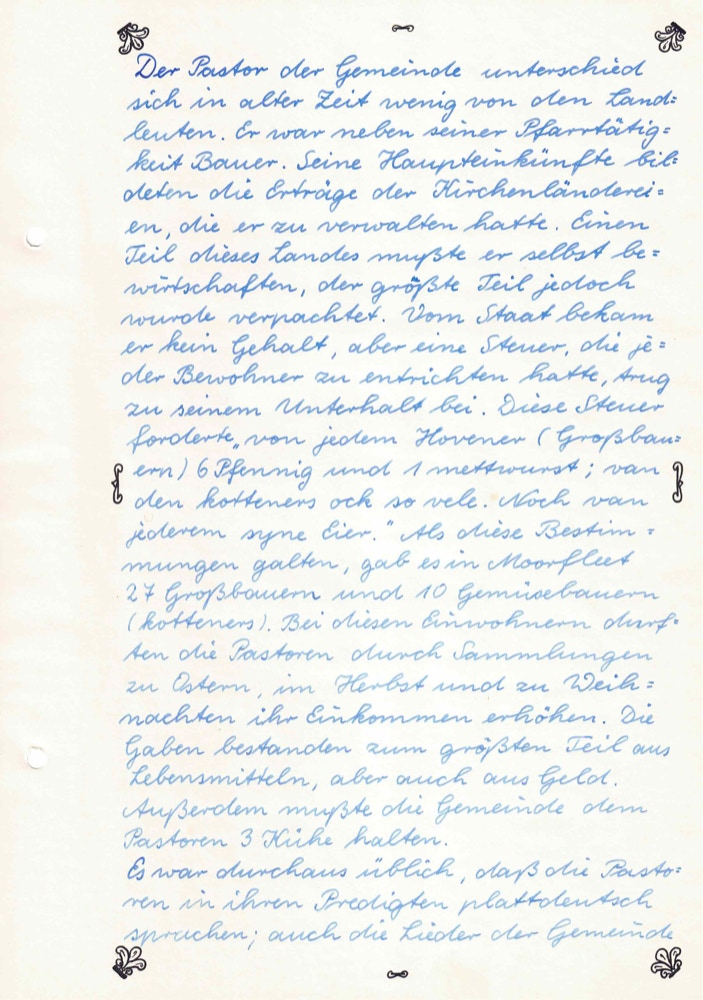 Der Pastor der Gemeinde unterschied
sich in alter Zeit wenig von den Land=
leuten. Er war neben seiner Pfarrtätig=
keit Bauer. Seine Haupteinkünfte bil=
deten die Erträge der Kirchenländerei=
en, die er zu verwalten hatte. Einen
Teil dieses Landes mußte er selbst be=
wirtschaften, der größte Teil jedoch
wurde verpachtet. Vom Staat bekam
er kein Gehalt, aber eine Steuer, die je=
der Bewohner zu entrichten hatte, trug
zu seinem Unterhalt bei. Diese Steuer
forderte „von jedem Hovener (Großbau=
ern) 6 Pfennig und 1 mettwurst; van
den kotteners ock so vele. Noch van
jederem syne Eier." Als diese Bestim=
mungen galten, gab es in Moorfleet
27 Großbauern und 10 Gemüsebauern
(kotteners). Bei diesen Einwohnern durf=
ten die Pastoren durch Sammlungen
zu Ostern, im Herbst und zu Weih=
nachten ihr Einkommen erhöhen. Die
Gaben bestanden zum größten Teil aus
Lebensmitteln, aber auch aus Geld.
Außerdem mußte die Gemeinde dem
Pastoren 3 Kühe halten.
Es war durchaus üblich, daß die Pasto=
ren in ihren Predigten plattdeutsch
sprachen; auch die Lieder der Gemeinde